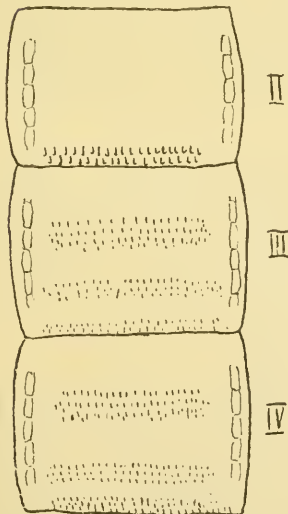 II
III
IV